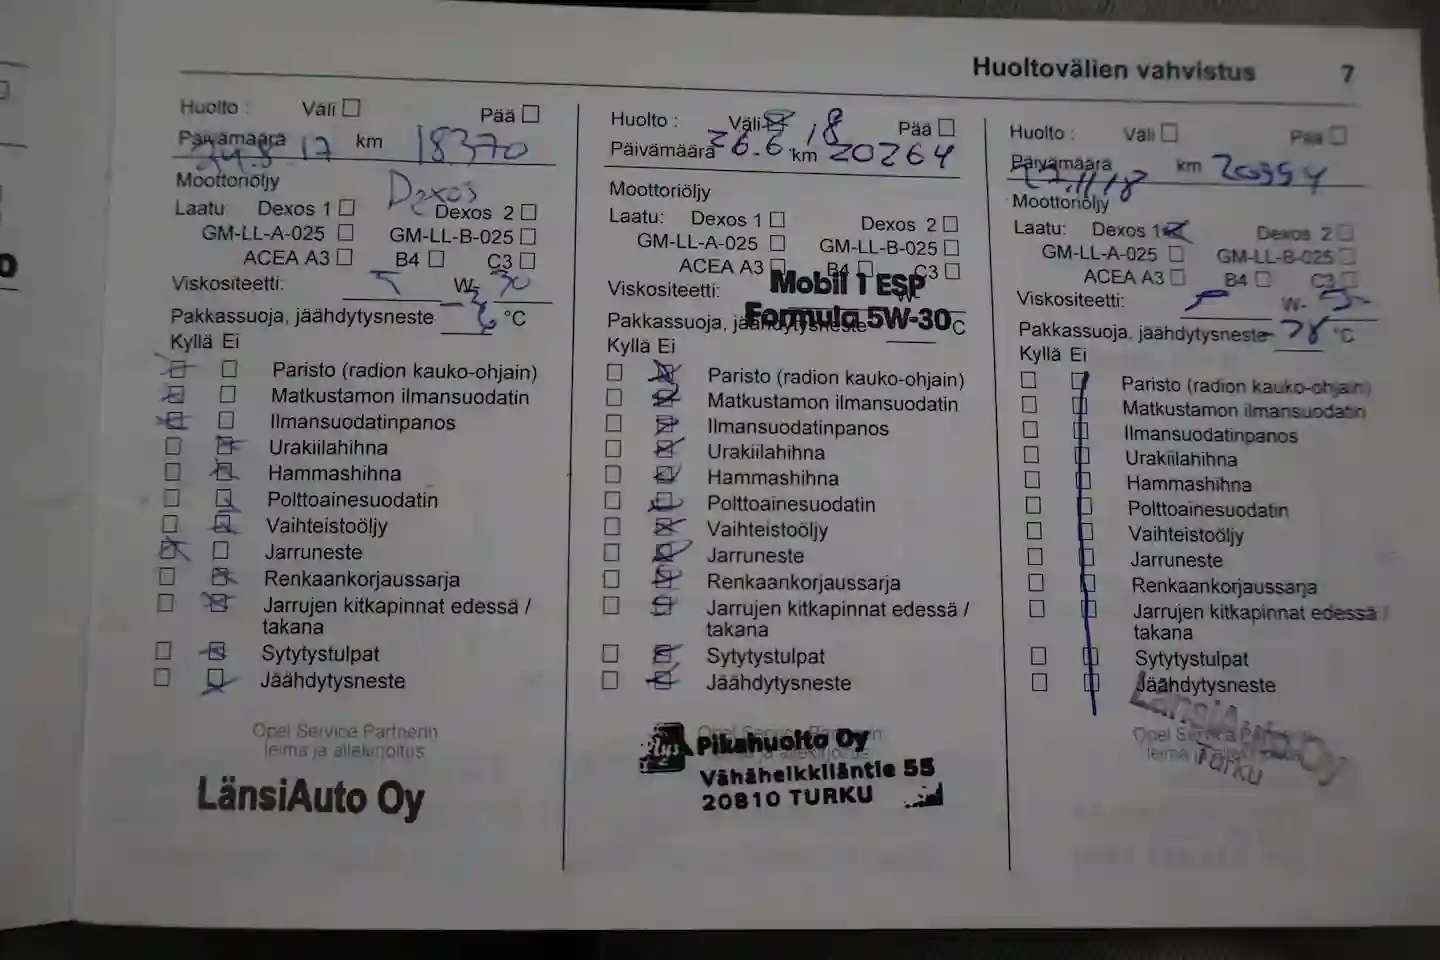 Huoltovälien vahvistus 7
Huolto : Väli Pää
Päivämäärä 24.8 17 km 18370
Moottoriöljy Dexos
Laatu: Dexos 1 Dexos 2
GM-LL-A-025 GM-LL-B-025
ACEA A3 B4 C3
Viskositeetti: 5 W- 30
Pakkassuoja, jäähdytysneste °C
Kyllä Ei
Paristo (radion kauko-ohjain)
Matkustamon ilmansuodatin
Ilmansuodatinpanos
Urakiilahihna
Hammashihna
Polttoainesuodatin
Vaihteistoöljy
Jarruneste
Renkaankorjaussarja
Jarrujen kitkapinnat edessä /
takana
Sytytystulpat
Jäähdytysneste
Opel Service Partnerin
leima ja allekirjoitus
LänsiAuto Oy
Huolto : Väli Pää
Päivämäärä 26.6 18 km 20264
Moottoriöljy
Laatu: Dexos 1 Dexos 2
GM-LL-A-025 GM-LL-B-025
ACEA A3 B4 C3
Viskositeetti: W-
Mobil 1 ESP
Formula 5W-30
Pakkassuoja, jäähdytysneste °C
Kyllä Ei
Paristo (radion kauko-ohjain)
Matkustamon ilmansuodatin
Ilmansuodatinpanos
Urakiilahihna
Hammashihna
Polttoainesuodatin
Vaihteistoöljy
Jarruneste
Renkaankorjaussarja
Jarrujen kitkapinnat edessä /
takana
Sytytystulpat
Jäähdytysneste
Opel Service Partnerin
leima ja allekirjoitus
Plus Pikahuolto Oy
Vähäheikkiläntie 55
20810 TURKU
Huolto : Väli Pää
Päivämäärä km
Moottoriöljy
Laatu: Dexos 1 Dexos 2
GM-LL-A-025 GM-LL-B-025
ACEA A3 B4 C3
Viskositeetti: W-
Pakkassuoja, jäähdytysneste °C
Kyllä Ei
Paristo (radion kauko-ohjain)
Matkustamon ilmansuodatin
Ilmansuodatinpanos
Urakiilahihna
Hammashihna
Polttoainesuodatin
Vaihteistoöljy
Jarruneste
Renkaankorjaussarja
Jarrujen kitkapinnat edessä /
takana
Sytytystulpat
Jäähdytysneste
LänsiAuto Oy
Turku